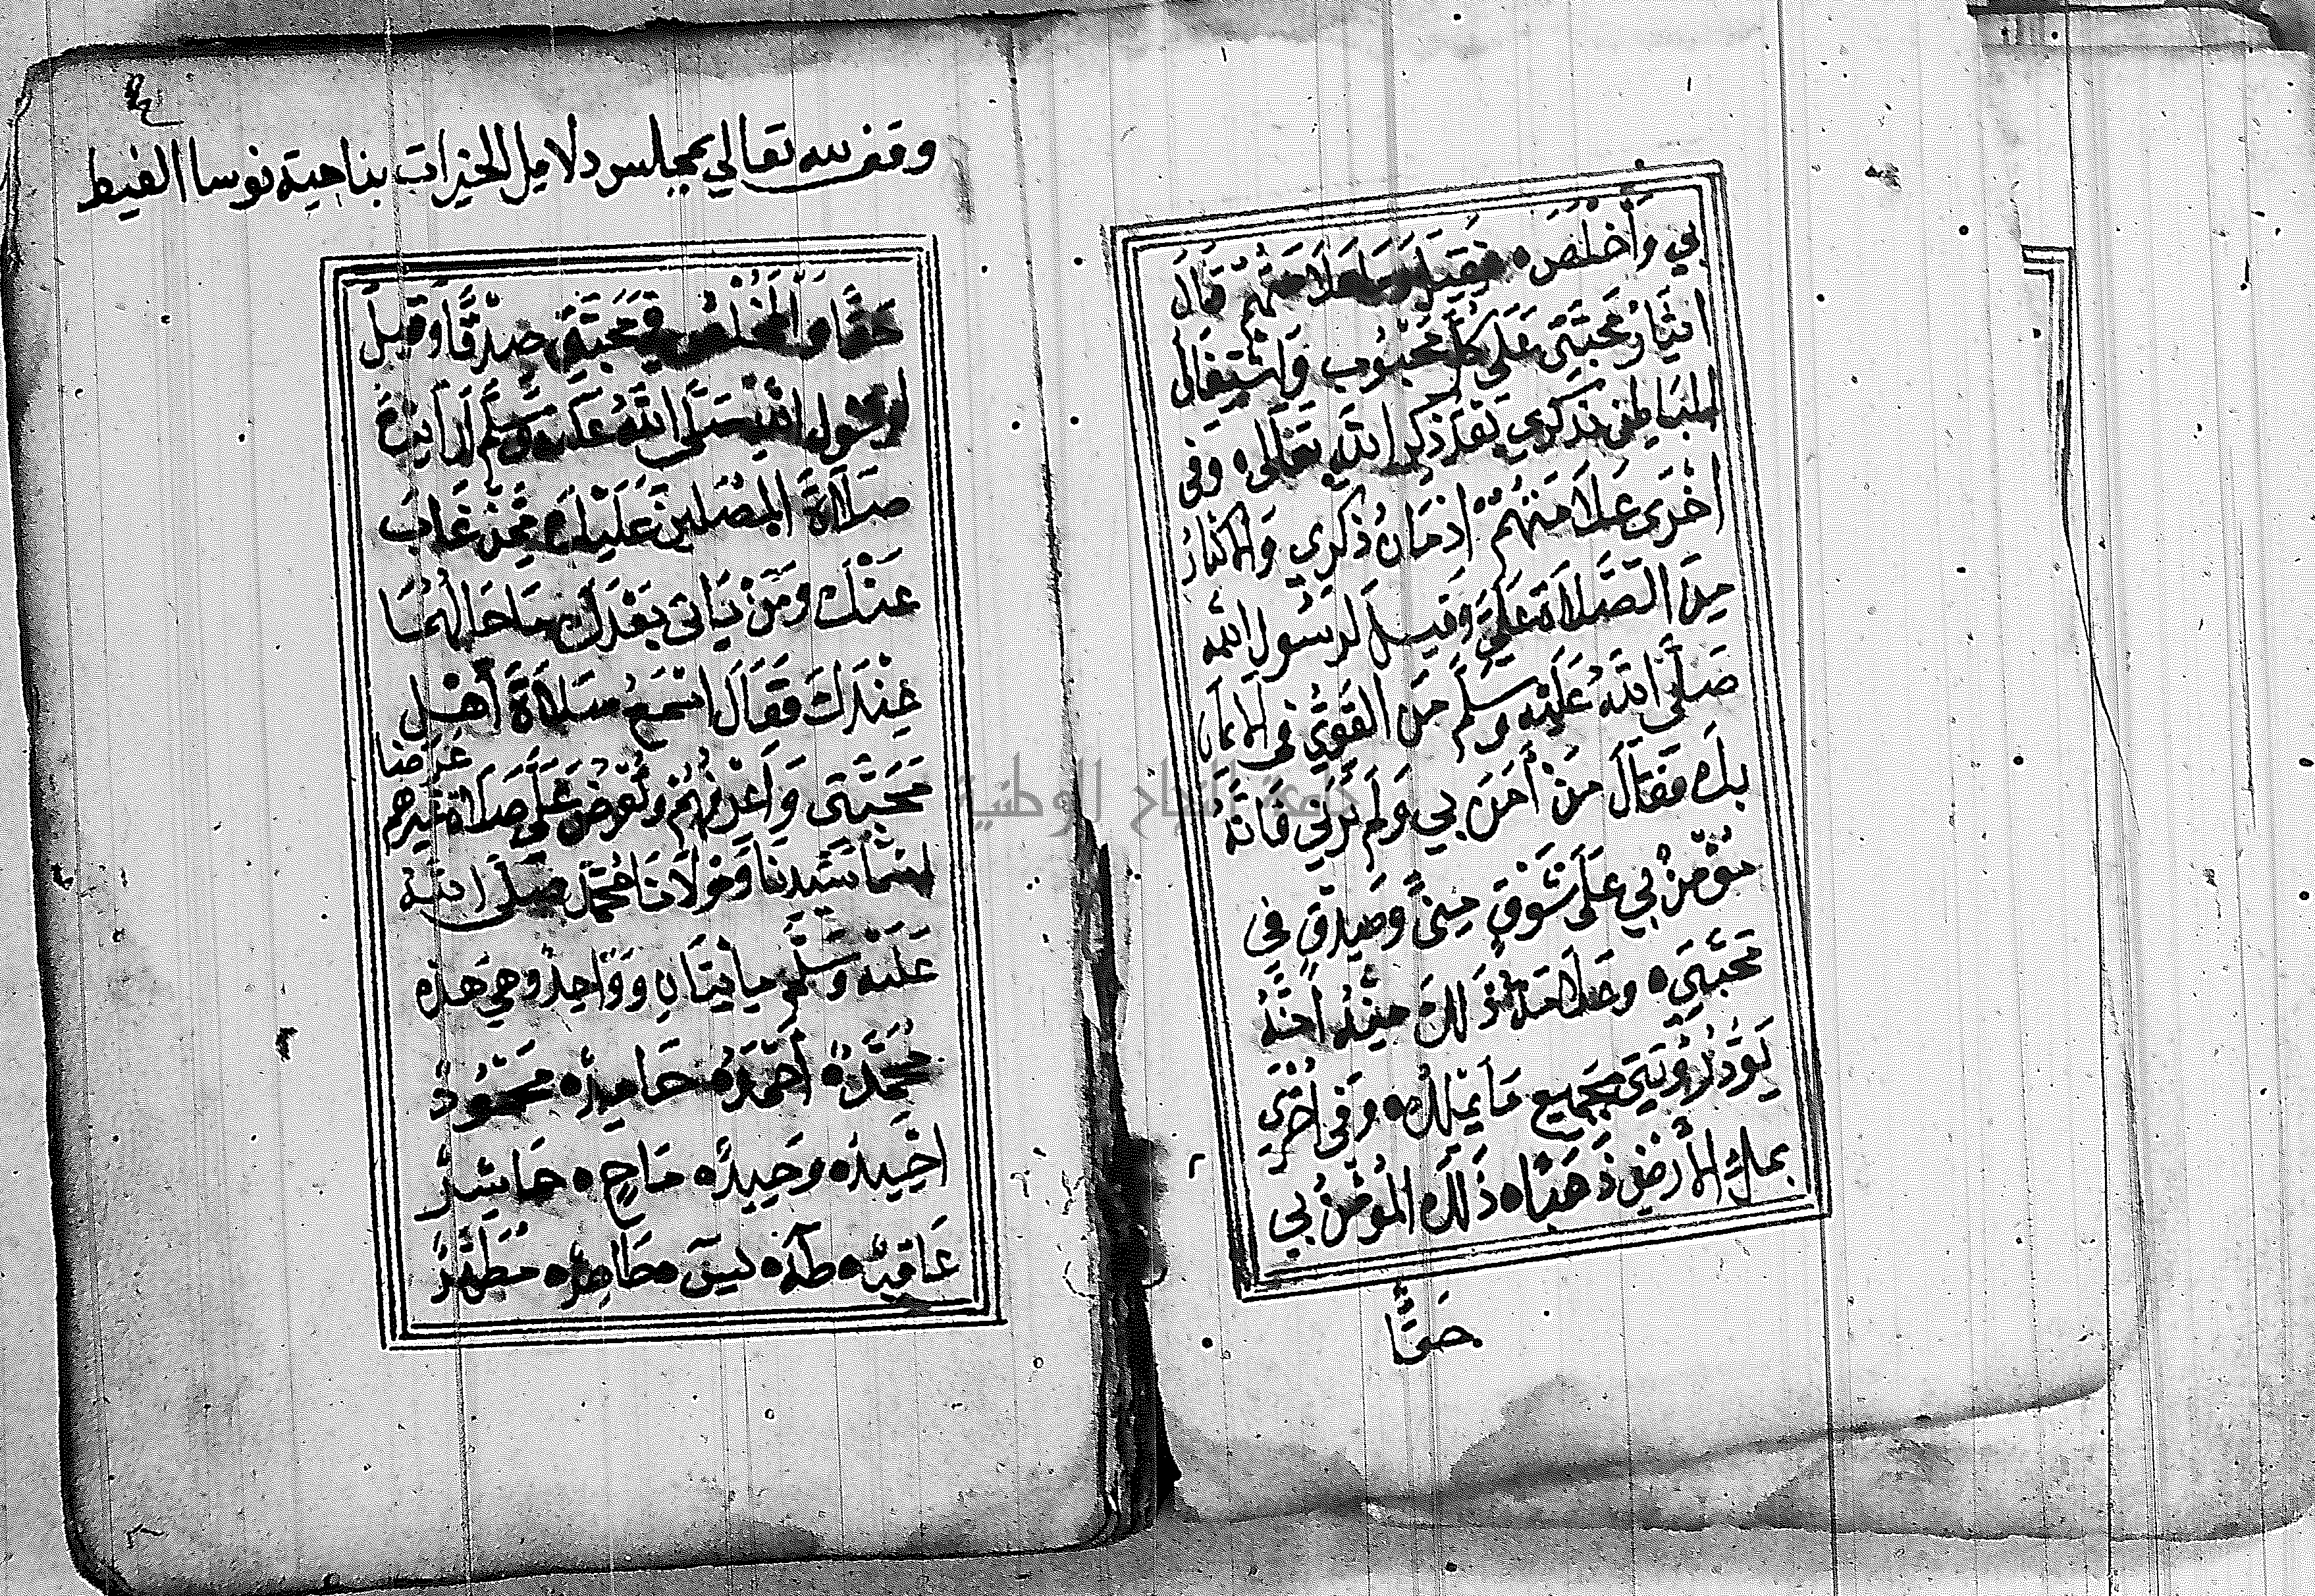 بِي وَأَخْلَصَ ه فَقِيلَ وَمَا عَلَامَتُهُمْ قَالَ
اِيثَارُ مَحَبَّتِي عَلَى كُلِّ مَحْبُوبٍ وَاشْتِغَالُ
الْبَاطِنِ بِذِكْرِي بَعْدَ ذِكْرِ اللَّهِ تَعَالَى ه وَفِي
اُخْرَى عَلَامَتُهُمْ اِدْمَانُ ذِكْرِي وَالْاِكْثَارُ
مِنَ الصَّلَاةِ عَلَيَّ وَقِيلَ لِرَسُولِ اللَّهِ
صَلَّى اللَّهُ عَلَيْهِ وَسَلَّمَ مَنِ الْقَوِيُّ فِي الْاِيمَانِ
بِكَ فَقَالَ مَنْ أَمَنَ بِي وَلَمْ يَرَنِي فَاِنَّهُ
مُؤْمِنٌ بِي عَلَى شَوْقٍ مِنِّي وَصِدْقٍ فِي
مَحَبَّتِي ه وَعَلَامَةُ ذَلِكَ مِنْهُ اَنَّهُ
يَوَدُّ رُؤْيَتِي بِجَمِيعِ مَا يَمْلِكُ ه وَفِي اُخْرَى
بِمِلْءِ الْأَرْضِ ذَهَبًا ه ذَلِكَ الْمُؤْمِنُ بِي
حَقًّا
وقف لله تعالى بمجلس دلايل الخيرات بناحية نوسا الغيط
حَقًّا وَالْمُخْلِصُ فِي مَحَبَّتِي صِدْقًا وَقِيلَ
لِرَسُولِ اللَّهِ صَلَّى اللَّهُ عَلَيْهِ وَسَلَّمَ أَرَأَيْتَ
صَلَاةَ الْمُصَلِّينَ عَلَيْكَ مِمَّنْ غَابَ
عَنْكَ وَمَنْ يَاتِي بَعْدَكَ مَا حَالُهُمَا
عِنْدَكَ فَقَالَ اَسْمَعُ صَلَاةَ أَهْلِ
مَحَبَّتِي وَاَعْرِفُهُمْ وَتُعْرَضُ عَلَيَّ صَلَاةُ غَيْرِهِمْ عَرْضًا
اسْمَا سَيِّدِنَا وَمَوْلَانَا مُحَمَّدٍ صَلَّى اللَّهُ
عَلَيْهِ وَسَلَّمَ مِايَتَانِ وَوَاحِدٌ وَهِيَ هَذِهِ
مُحَمَّدٌ ه أَحْمَدُ ه حَامِدٌ ه مَحْمُودٌ
اَحِيدٌ ه وَحِيدٌ ه مَاحٍ ه حَاشِرٌ
عَاقِبٌ ه طَهَ ه يسَ ه طَاهِرٌ ه مُطَهَّرٌ
جامعة النجاح الوطنية